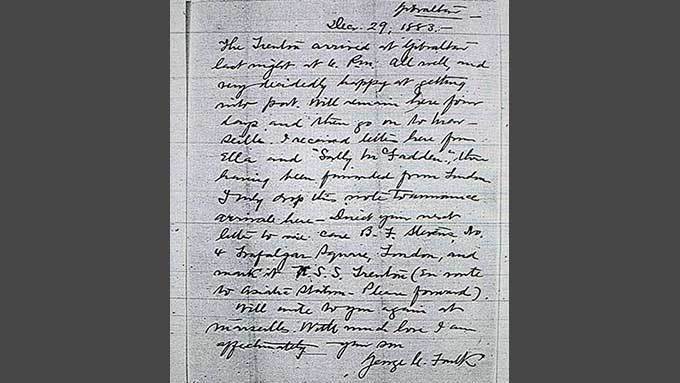 Gibraltar
Dec. 29, 1883.
The Trenton arrived at Gibraltar
last night at 6. P.m. All well, and
very decidedly happy at getting
into port. Will remain here four
days and then go on to Mar-
seille. I received letters here from
Ella and "Sally McFadden",
having been forwarded from London
I only drop this note to announce
arrivals here - Direct your next
letter to me care B. F. Stevens, No.
4 Trafalgar Square, London, and
mark it U.S.S. Trenton (en route
to Asiatic Station - Please forward).
Will write to you again at
Marseilles. With much love I am
affectionately your son
George C. Foulk